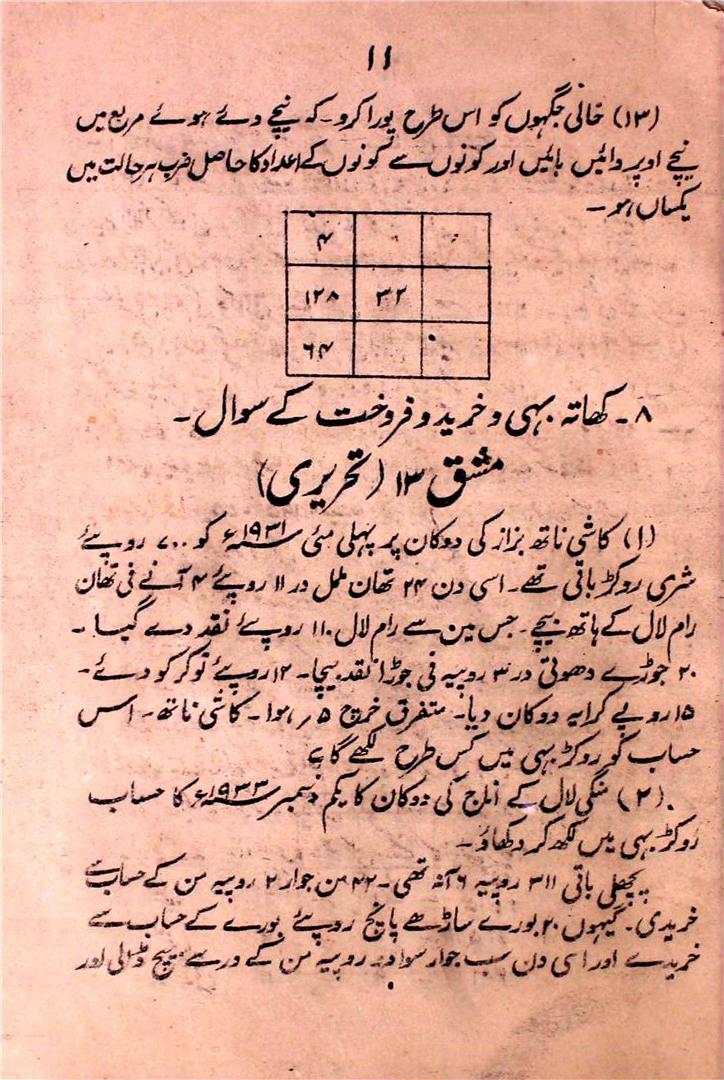 ۱۱
(۱۳) خالی جگہوں کو اس طرح پورا کرو۔ کہ نیچے دئے ہوئے مربع میں
نیچے اوپر دائیں بائیں اور کونوں سے کونوں کے اعداد کا حاصل ضرب ہر حالت میں
یکساں ہو۔
۴
۱۲۸ ۳۲
۶۴
۸۔ کھاتہ بہی و خرید و فروخت کے سوال۔
مشق ۱۳ (تحریری)
(۱) کاشی ناتھ بزاز کی دوکان پر پہلی مئی ۱۹۳۱ء کو ۷۰۰ روپئے
شری روکڑ باقی تھے۔ اسی دن ۲۴ تھان ململ در ۱۱ روپئے ۴ آنے فی تھان
رام لال کے ہاتھ بیچے۔ جس مین سے رام لال ۱۱۰ روپئے نقد دے گیا۔
۲۰ جوڑے دھوتی در ۳ روپیہ فی جوڑا نقد بیچا۔ ۱۲ روپئے نوکر کو دئے۔
۱۵ روپے کرایہ دوکان دیا۔ متفرق خرچ ۵؍ ہوا۔ کاشی ناتھ۔ اس
حساب کو روکڑ بہی میں کس طرح لکھے گا؟
(۲) منگی لال کے اناج کی دوکان کا یکم دسمبر ۱۹۳۳ء کا حساب
روکڑ بہی میں لکھ کر دکھاؤ۔
پچھلی باقی ۳۱۱ روپیہ ۶ آنہ تھی۔ ۴۲ من جوار ۲ روپیہ من کے حساب سے
خریدی۔ گیہوں ۲۰ بورے ساڑھے پانچ روپئے بورے کے حساب سے
خریدے اور اسی دن سب جوار سوا دو روپیہ من کے در سے بیچ ڈالی اور